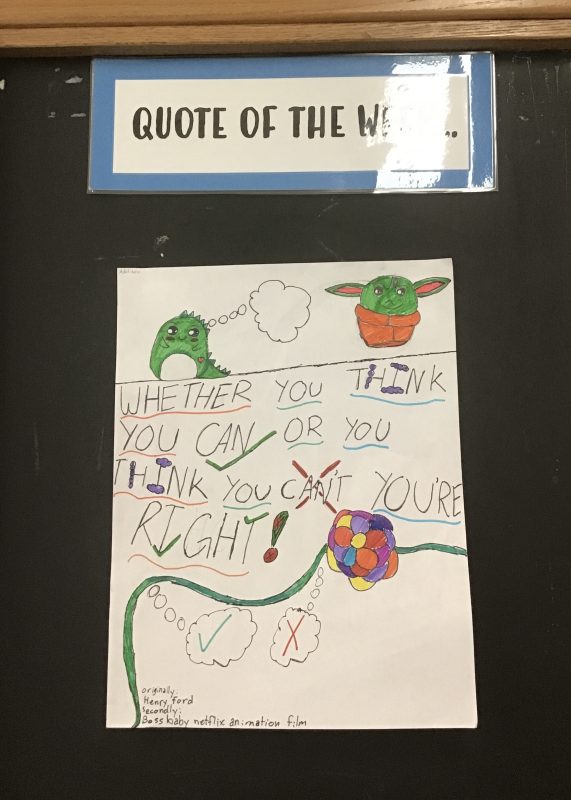 QUOTE OF THE
WHETHER YOU THINK
YOU CAN OR YOU
THINK YOU CAN'T YOU'RE
RIGHT!
originally:
Henry Ford
secondly:
Boss baby netflix animation film